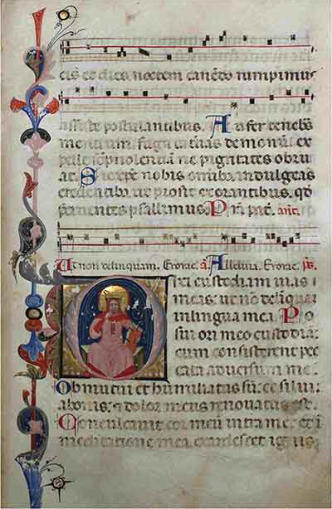 cis et dies noctem canendo rumpimus
assiste postulantibus. Aufer tenebras
mentium fuga catervas demonum ex
pelle sopnolentia ne pigritantes obru
at. Sic xpe nobis omnibus indulgeas
credentibus ut prosit exorantibus. qd
precinentes psallimus. Pres. pat. ant.
Ut non delinquam. Evovae. a. Alleluia. Evovae. ps.
Dixi custodiam vias
meas ut non delinqua
in lingua mea. Po
sui ori meo custodia
cum consisteret pec
cator adversum me.
Obmutui et humiliatus su et silui
a bonis et dolor meus renovatus est.
Concaluit cor meum intra me et i
meditatione mea exardescet ignis